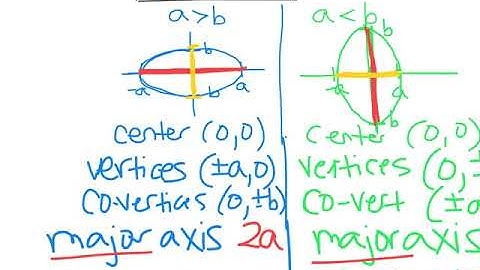 a>b
b
-a
a
-b
center (0,0)
vertices (±a,0)
co-vertices (0,±b)
major axis 2a
a<b
b
-a
a
-b
center (0,0)
vertices (0,
co-vert (±a
major axis